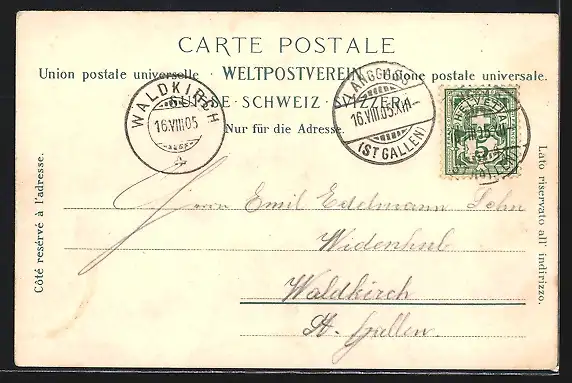 CARTE POSTALE
Union postale universelle · WELTPOSTVEREIN · Unione postale universale.
SUISSE · SCHWEIZ · SVIZZERA
Nur für die Adresse.
WALDKIRCH
16.VIII.05
LANGGASS
16.VIII.05.XII
(ST GALLEN)
HELVETIA
5
Côté reservé à l'adresse.
Lato riservato all' indirizzo.
Herrn Emil Eddmann Sohn
Widenhub
Waldkirch
St. Gallen.